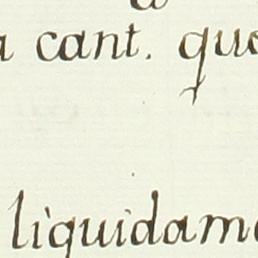 a cant. que
liquidame